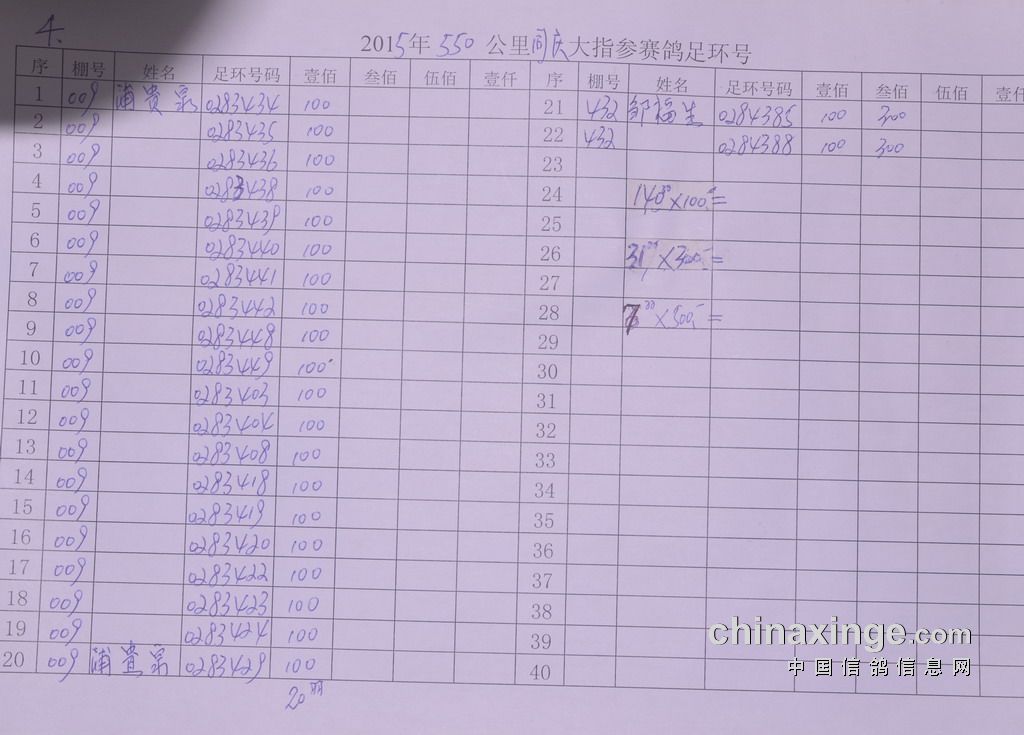 4.
2015年 550 公里同庆大指参赛鸽足环号
序 棚号 姓名 足环号码 壹佰 叁佰 伍佰 壹仟 序 棚号 姓名 足环号码 壹佰 叁佰 伍佰 壹仟
1 009 浦贵宗 0283434 100 21 432 邹福生 0284385 100 300
2 009 0283435 100 22 432 0284388 100 300
3 009 0283436 100 23
4 009 0283438 100 24 ×100=
5 009 0283439 100 25
6 009 0283440 100 26 ×300=
7 009 0283441 100 27
8 009 0283442 100 28 ×500=
9 009 0283448 100 29
10 009 0283449 100 30
11 009 0283403 100 31
12 009 0283404 100 32
13 009 0283408 100 33
14 009 0283418 100 34
15 009 0283419 100 35
16 009 0283420 100 36
17 009 0283422 100 37
18 009 0283423 100 38
19 009 0283424 100 39
20 009 浦贵宗 0283429 100 40
20羽
chinaxinge.com
中国信鸽信息网